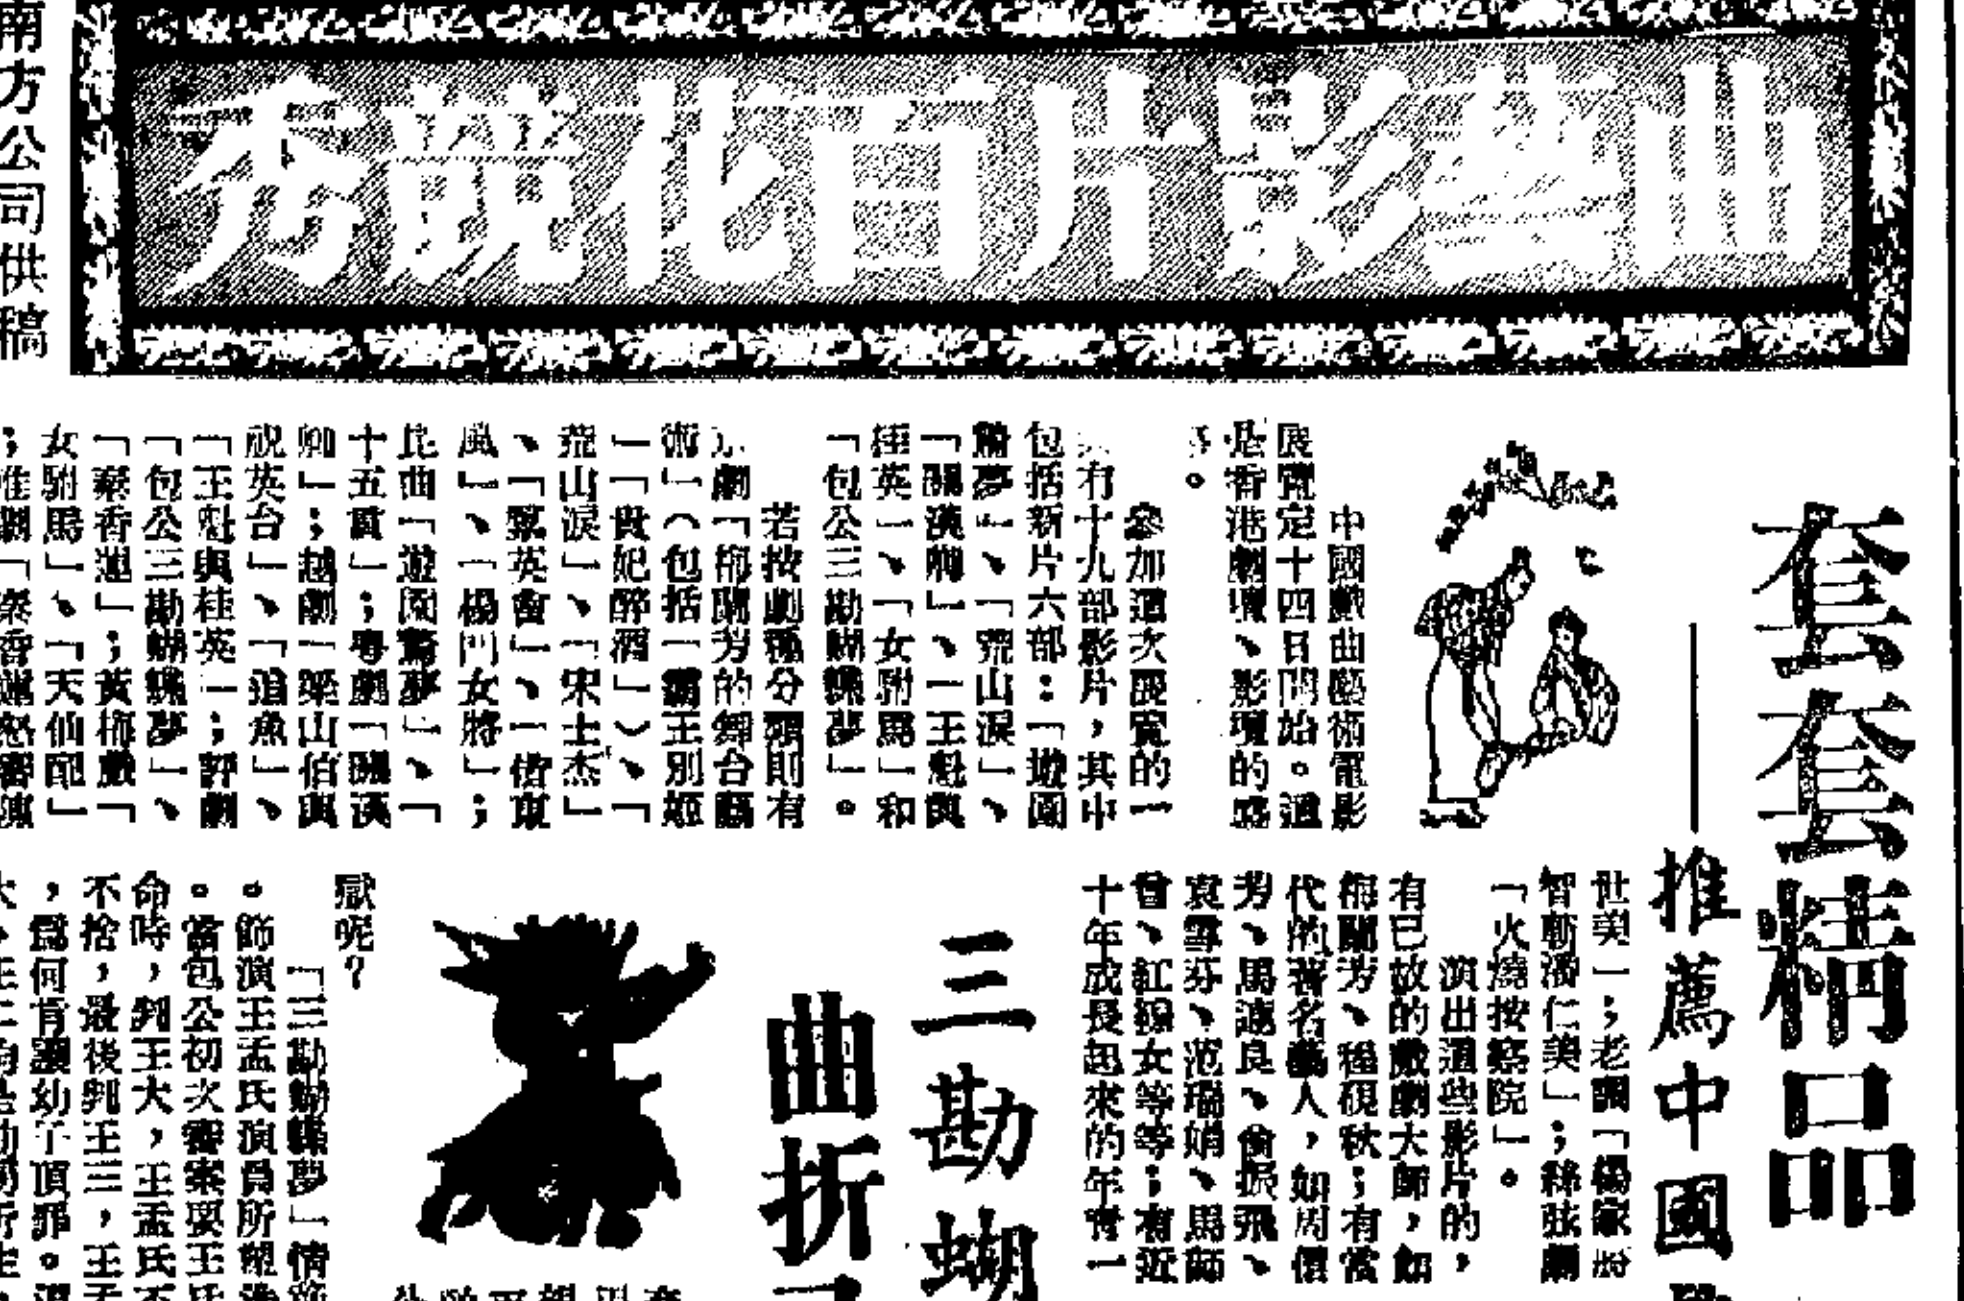 曲藝影片百花競秀
南方公司供稿
套套精品
——推薦中國
中國戲曲藝術電影
展覽定十四日開始。這
是香港劇壇、影壇的盛
。
參加這次展覽的一
有十九部影片，其中
包括新片六部：「遊園
驚夢」、「荒山淚」、
「關漢卿」、「王魁與
桂英」、「女駙馬」和
「包公三勘蝴蝶夢」。
若按劇種分類則有
劇「梅蘭芳的舞台藝
術」（包括「霸王別姬
」「貴妃醉酒」）、「
荒山淚」、「宋士杰」
、「羣英會」、「借東
風」、「楊門女將」；
昆曲「遊園驚夢」、「
十五貫」；粵劇「關漢
卿」；越劇「梁山伯與
祝英台」、「追魚」、
「王魁與桂英」；評劇
「包公三勘蝴蝶夢」、
「秦香蓮」；黃梅戲「
女駙馬」、「天仙配」
；淮劇「秦香蓮
世美」；老調「楊家將
智斬潘仁美」；絲弦劇
「火燒按察院」。
演出這些影片的，
有已故的戲劇大師，如
梅蘭芳、程硯秋；有當
代的著名藝人，如周信
芳、馬連良、俞振飛、
袁雪芬、范瑞娟、馬師
曾、紅線女等等；有近
十年成長起來的年青一
三勘蝴
曲折
獄呢？
「三勘蝴蝶夢」情節
。飾演王孟氏演員所塑造
。當包公初次審案要王氏
命時，判王大，王孟氏不
不捨，最後判王三，王孟
，為何肯讓幼子頂罪。